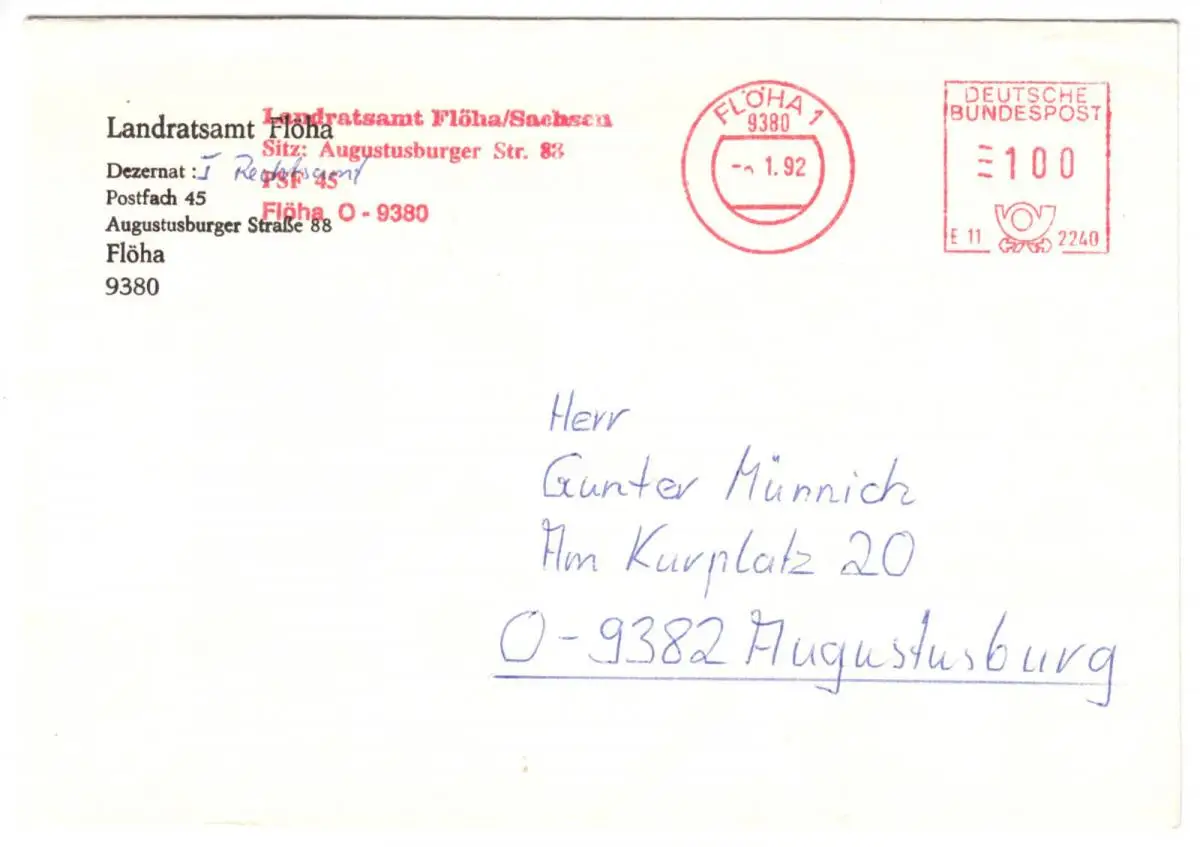 Landratsamt Flöha
Dezernat : I Rechtsamt
Postfach 45
Augustusburger Straße 88
Flöha
9380
Landratsamt Flöha/Sachsen
Sitz: Augustusburger Str. 88
PSF 45
Flöha O - 9380
FLÖHA 1
9380
1.92
DEUTSCHE
BUNDESPOST
100
E 11 2240
Herr
Gunter Münnich
Am Kurplatz 20
O-9382 Augustusburg